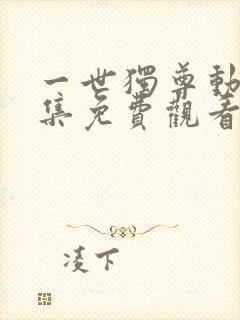 一世獨尊動
集免費觀看
凌下